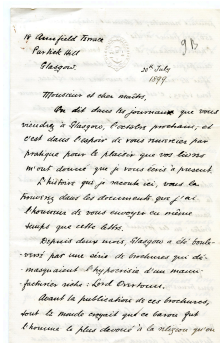 14 Annfield Terrace
Partick Hill
Glasgow.
20th July
1899
Monsieur et cher maître,
On dit dans les journaux que vous
viendrez à Glasgow, l'octobre prochain, et
c'est dans l'espoir de vous remercier par
pratique pour le plaisir que vos livres
m'ont donné que je vous écris à présent.
L'histoire que je raconte ici, vous la
trouverez dans les documents que j'ai
l'honneur de vous envoyer en même
temps que cette lettre.
Depuis deux mois, Glasgow a été boule-
versé par une série de brochures qui dé-
masquaient l'hypocrisie d'un manu-
facturier riche, Lord Overtoun.
Avant la publication de ces brochures,
tout le monde croyait que ce baron fut
l'homme le plus dévoué à la religion qu'on